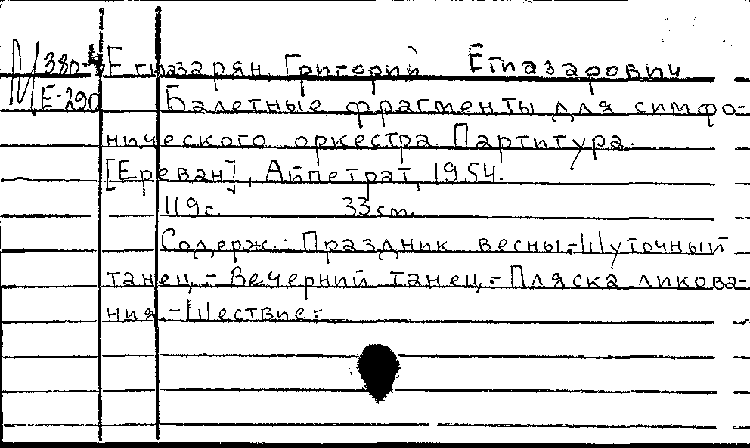 М 380-4 Егиазарян, Григорий Егиазарович
Е-290 Балетные фрагменты для симфо-
нического оркестра Партитура.
[Ереван], Айпетрат, 1954.
119 с. 33 см.
Содерж.: Праздник весны.-Шуточный
танец.- Вечерний танец.- Пляска ликова-
ния.-Шествие.